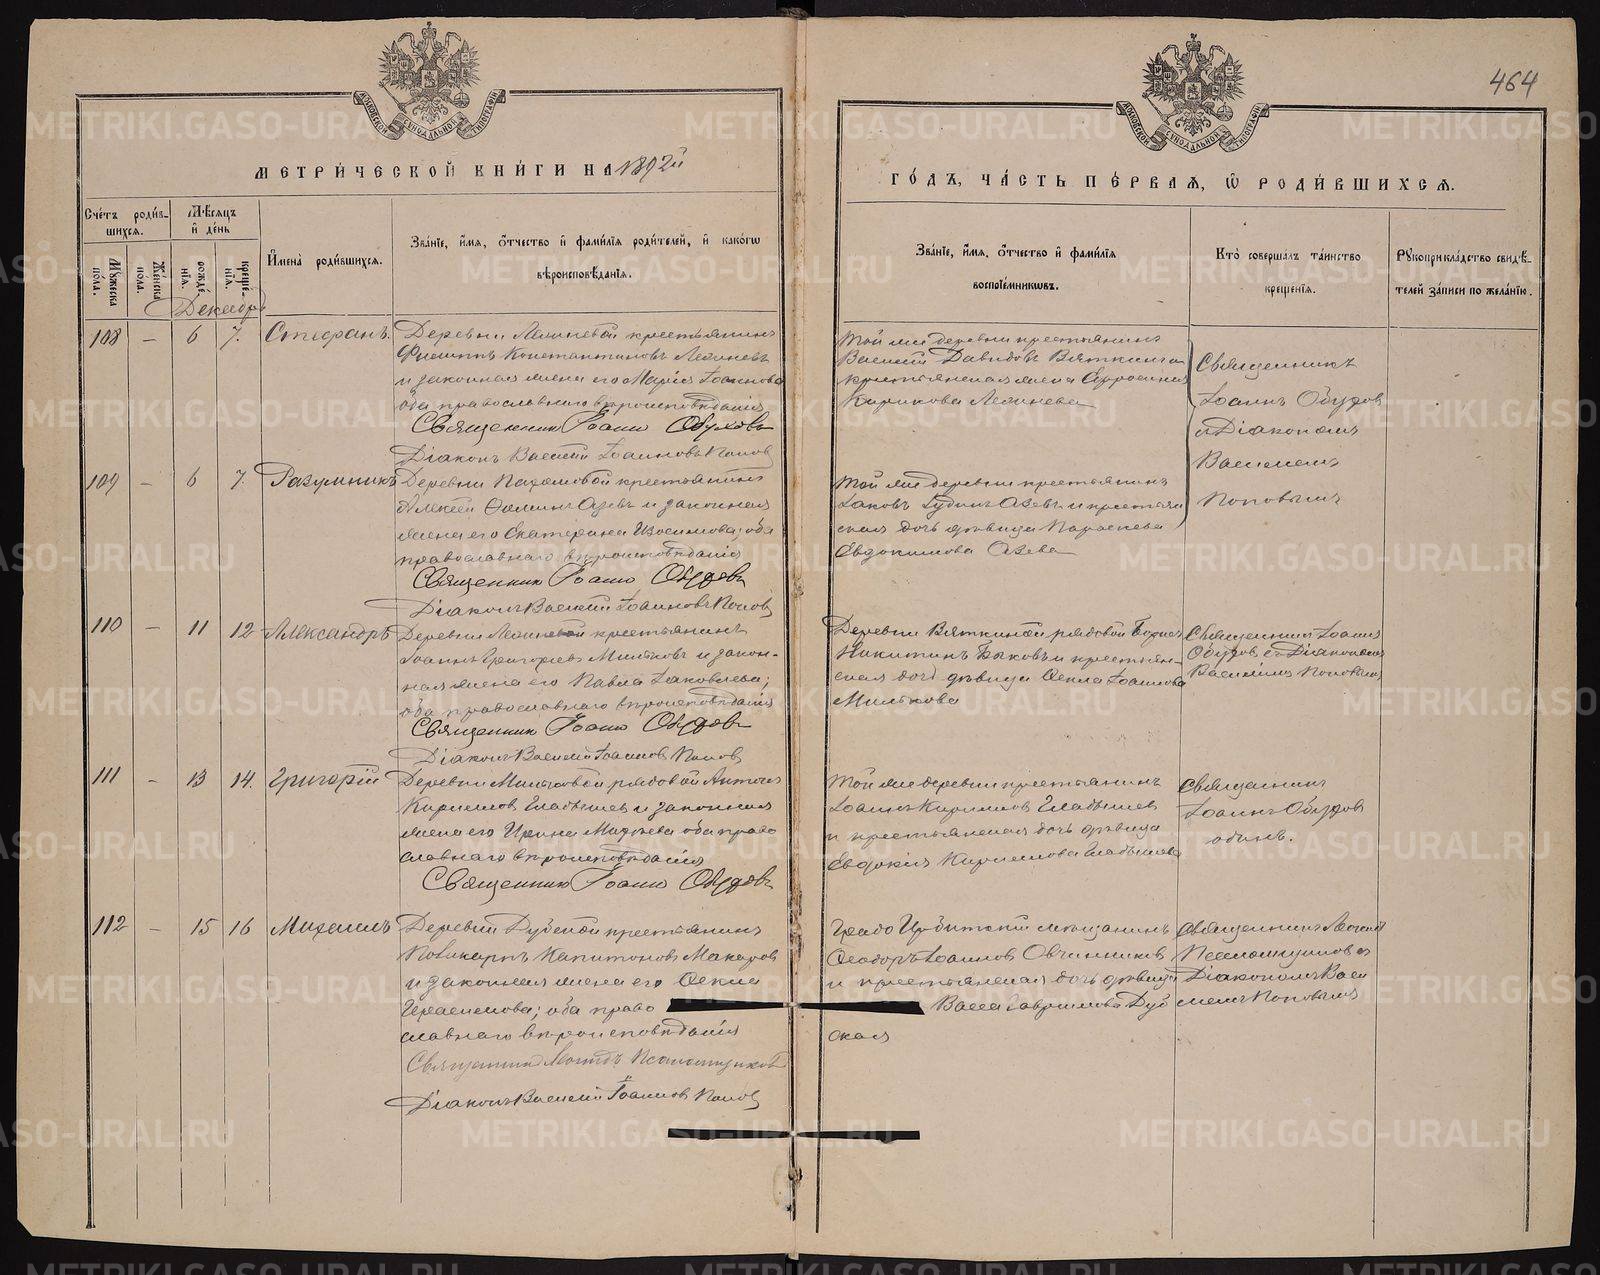 464
МОСКОВСКОЙ СѴНОДАЛЬНОЙ ТИПОГРАФІИ
МОСКОВСКОЙ СѴНОДАЛЬНОЙ ТИПОГРАФІИ
МЕТРИ́ЧЕСКОЙ КНИ́ГИ НА 1892й
ГО́ДЪ, ЧА́СТЬ ПЕ́РВАЯ, Ѽ РОДИ́ВШИХСЯ.
Сче́тъ роди́в-
шихся.
Мꙋ́жеска пола.
Же́нска пола.
Мѣ́сяцъ
и҆ де́нь
рожде́нїѧ.
креще́нїѧ.
И҆мена̀ роди́вшихся.
Зва́нїе, и҆́мя, ѻ҆́тчество и҆ фами́лїя роди́телей, и҆ како́гѡ
вѣроисповѣ́данїя.
Зва́нїе, и҆́мя, ѻ҆́тчество и҆ фами́лїя
воспрїе́мникѡвъ.
Кто̀ соверша́лъ та́инство
креще́нїя.
Рꙋкоприкла́дство свидѣ́-
телей за́писи по жела́нїю.
Декабрь
108 — 6 7. Стефанъ.
Деревни крестьянинъ
Филиппъ Константиновъ
и законная жена его Марія Іоаннова
оба православнаго вѣроисповѣданія
Священник Іоанн Обухов
Діаконъ Василій Іоанновъ Попов
Той же деревни крестьянинъ
Василій Давидовъ Вяткинъ и
крестьянская жена
Кирикова
Священникъ
Іоаннъ Обухов
с Діакономъ
Василіемъ
Поповымъ
109 — 6 7. Разумникъ
Деревни крестьянинъ
Алексѣй и законная
жена его Екатерина оба
православнаго вѣроисповѣданія
Священник Іоанн Обухов
Діаконъ Василій Іоанновъ Попов
Той же деревни крестьянинъ
Іаковъ и крестьян
ская дочь дѣвица Параскева
Евдокимова
110 — 11 12 Александръ
Деревни крестьянинъ
Іоаннъ Григорьевъ Мильковъ и закон-
ная жена его Павла Іаковлева;
оба православнаго вѣроисповѣданія
Священник Іоанн Обухов
Діаконъ Василій Іоаннов Попов
Деревни Вяткиной рядовой
Никитинъ Быковъ и крестьян-
ская дочь дѣвица Ѳекла Іоаннова
Милькова
Священник Іоанн
Обухов с Діакономъ
Василіемъ Поповымъ
111 — 13 14. Григорій
Деревни Мильковой рядовой Антон
Кириллов Гладышев и законная
жена его Ирина оба право
славнаго вѣроисповѣданія
Священник Іоанн Обухов
Той же деревни крестьянинъ
Іоаннъ Кириллов Гладышев
и крестьянская дочь дѣвица
Евдокія Кириллова Гладышева
Священник
Іоаннъ Обухов
один.
112 — 15 16 Михаилъ
Деревни Дубской крестьянинъ
Поликарпъ Капитоновъ Макаров
и законная жена его Ѳекла
оба право
славнаго вѣроисповѣданія
Священник Псаломщиков
Діаконъ Василій Іоаннов Попов
Градо Ирбитскій мѣщанинъ
Ѳеодоръ Іоаннов Овчинников
и крестьянская дочь дѣвица
Васса Гаврилова Дуб
ская
Священникъ
Псаломщиков с
Діакономъ Васи
лiемъ Поповымъ
METRIKI.GASO-URAL.RU